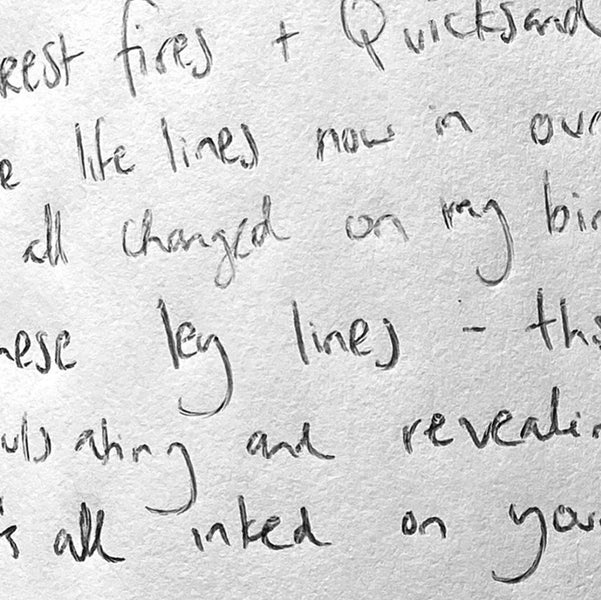 rest fires + Quicksand
e life lines now in our
all changed on my bir
hese ley lines - the
ulsating and revealin
's all inked on your